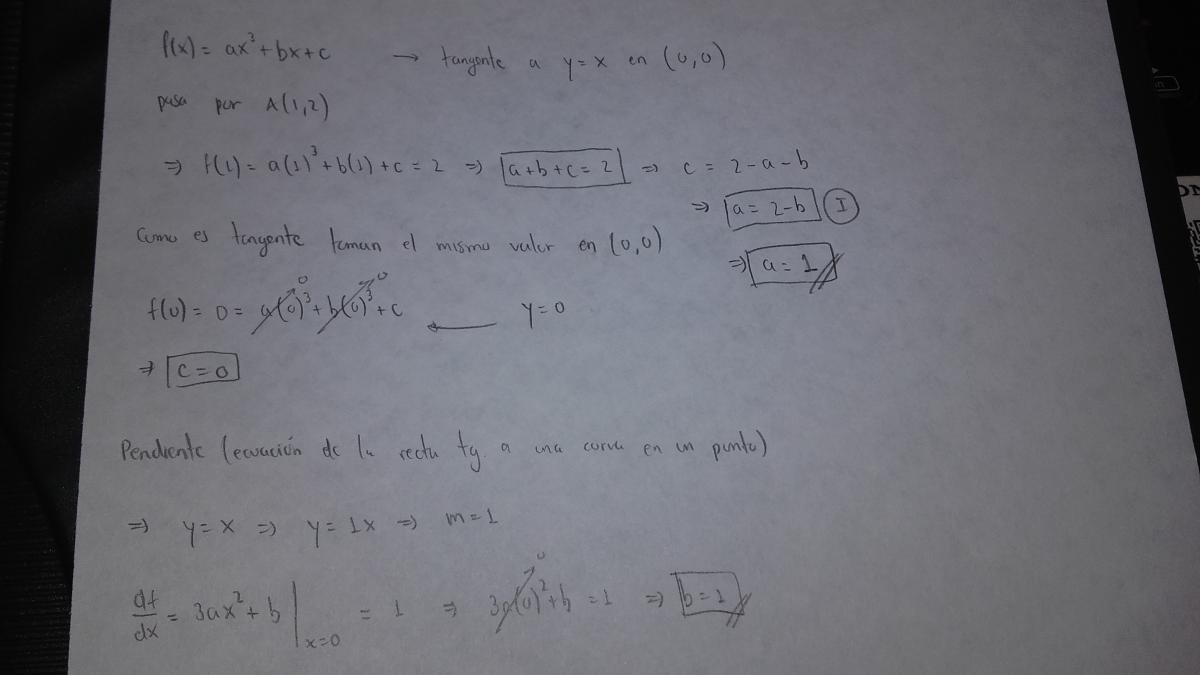 f(x) = ax³ + bx + c → tangente a y = x en (0,0)
pasa por A(1,2)
⇒ f(1) = a(1)³ + b(1) + c = 2 ⇒ a+b+c = 2 ⇒ c = 2-a-b
⇒ a = 2-b I
Como es tangente toman el mismo valor en (0,0)
⇒ a = 1
0 0
f(0) = 0 = a(0)³ + b(0)³ + c ← y = 0
⇒ c = 0
Pendiente (ecuación de la recta tg. a una curva en un punto)
⇒ y = x ⇒ y = 1x ⇒ m = 1
0
df/dx = 3ax² + b |x=0 = 1 ⇒ 3a(0)² + b = 1 ⇒ b = 1